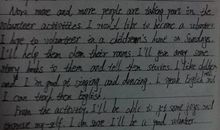 Now more and more people are taking part in the
volunteer activities I would like to become a volunteer
I hope to volunteer in a children's home on Sundays
I'll help them clean their rooms. I'll
story books to them and tell them stories. I like
and I am good at singing and dancing. I speak English well
I can teach them English
From the activity, I'll be able to get some joys and
myself. I am sure I'll be a good volunteer.